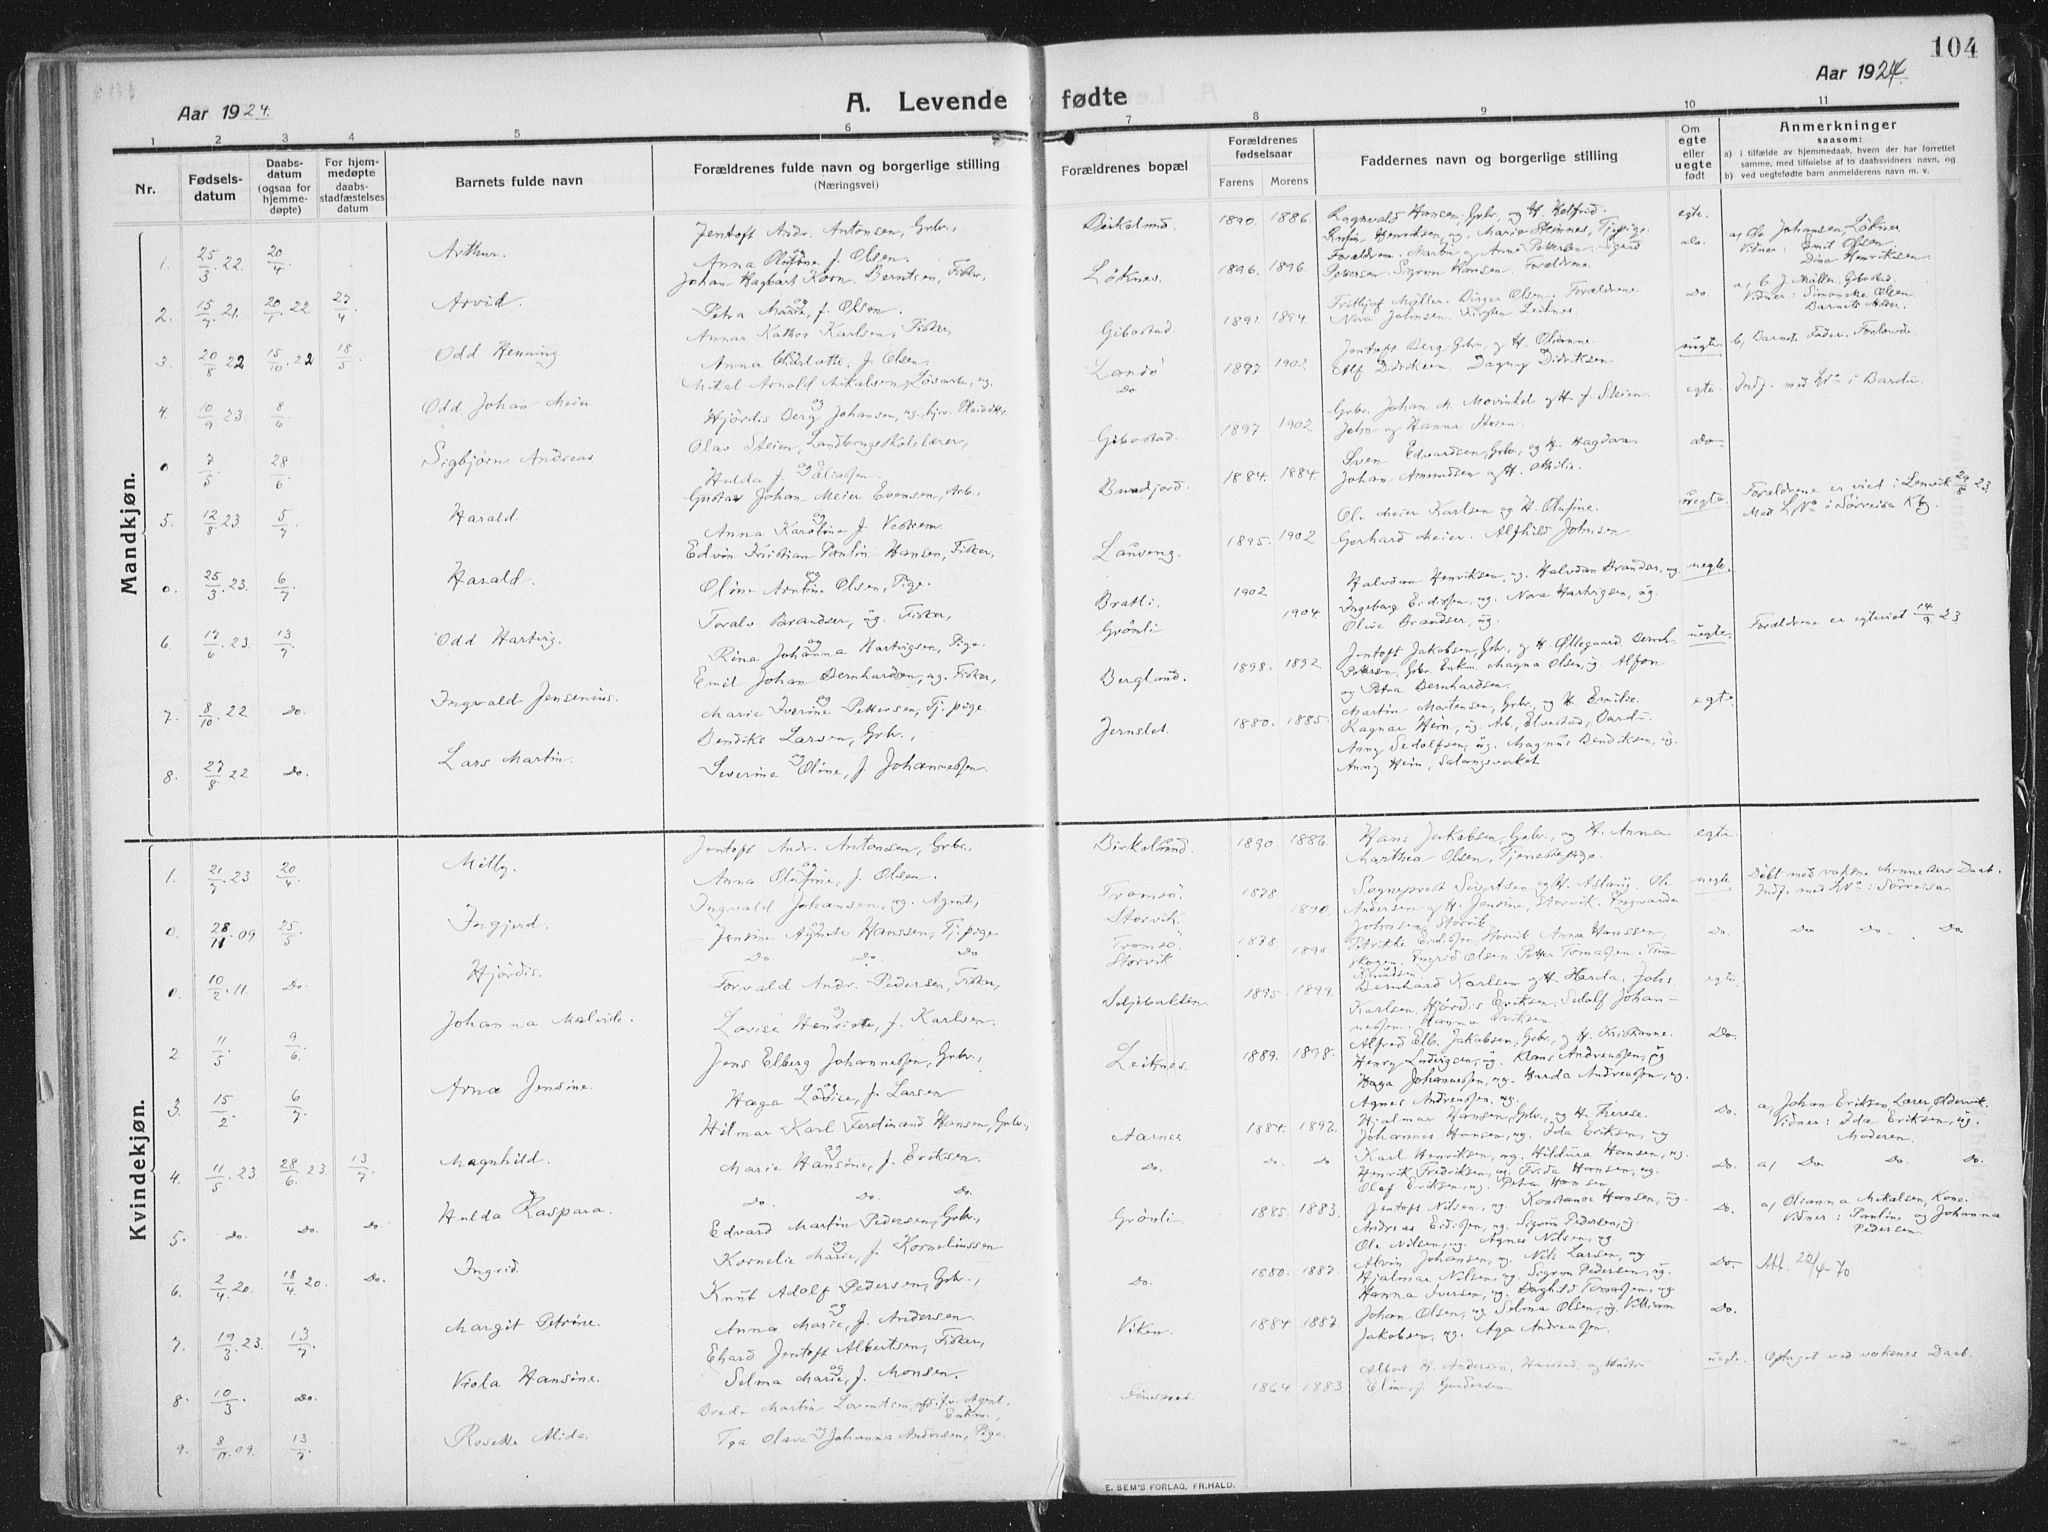 104
Aar 1924.
A. Levende fødte
Aar 1924.
1 2 3 4 5 6 7 8 9 10 11
Nr.
Fødsels-
datum
Daabs-
datum
(ogsaa for
hjemme-
døpte)
For hjem-
medøpte
daabs-
stadfæstelses
datum
Barnets fulde navn
Forældrenes fulde navn og borgerlige stilling
(Næringsvei)
Forældrenes bopæl
Forældrenes
fødselsaar
Farens Morens
Faddernes navn og borgerlige stilling
Om
egte
eller
uegte
født
Anmerkninger
saasom:
a) i tilfælde av hjemmedaab, hvem der har forrettet
samme, med tilføielse af to daabsvidners navn, og
b) ved uegtefødte barn anmelderens navn m. v.
Mandkjøn.
1. 25/3 22. 20/4 Arthur.
Jentoft Andr. Antonsen, Grbr.,
og
Anna Olufine f. Olsen.
Birkelund 1890. 1886.
Ragnvald Hansen, Grbr, og H. Helfrid.
egte.
a, Johansen, Løknes
Vidner: Emil Olsen.
Dina Henriksen
2. 15/7 21. 20/1 22 27/4 Arvid.
Johan Hagbart Korn. Berntsen, Fisker,
og
Petra Marie, f. Olsen.
Løknes. 1896. 1896.
Pettersen. Sigrun Hansen. Forældrene
do.
a, C. J. Møller, Gibostad
Vidner: Simonette Olsen
Barnets Moder.
3. 20/8 22 15/10 22 18/5 Odd Henning
Annar Kathor Karlsen, Fisker,
Anna Charlotte, f. Olsen.
Gibostad 1891 1894.
Fridtjof Møller. Birger Olsen. Forældrene
Nora Johnsen. Leiknes.
Do.
4. 10/9 23 8/6 Odd Johan Meier
Mikal Arnold Mikalsen, Løsarb., ug.
og
Hjördis Berg Johansen, ug.
Landø
Do
1897 1902
Jentoft Berg, Grbr, og H. Olianne.
Alf Didriksen. Dagny Didriksen
uegte
b, Barnets Fader, Forlovede
0 7/5 28/6 Sigbjørn Andreas
Olav Steien, Landbrugsskolelærer,
og
Hulda f. Eliassen.
Gibostad. 1897 1902.
Grbr. Johan M. Movinkel og H. f. Steien
John og Hanna Steien.
egte.
Indf. med No i Bardu.
5. 12/8 23. 5/7 Harald.
Gustav Johan Meier Evensen, Arb.,
og
Anna Karoline f. Vebrem.
Bundjord. 1884. 1884.
Sven Edvardsen, Grbr, og H. Hagdaa
Johan Amundsen og H. Ottilie.
Do
0. 25/3 23. 6/7 Harald.
Edvin Kristian Paulin Hansen, Fisker,
og
Oline Arntine Olsen, Pige.
Lauveng. 1895. 1902
Ole Meier Karlsen og H. Olufine.
Gerhard Meier. Alfhild Johnsen
uegte.
Forældrene er viet i Lenvik 29/8 23
Med No i Sørreisa Kbg.
6. 17/6 23. 13/7 Odd Hartvig.
Toralv Brandser, ug. Fisker,
og
Rina Johanna Hartvigsen, Pige.
Bratli.
Grönli
1902 1904.
Halvdan Henriksen, ug. Halvdan Brandser, ug
Ingeborg Eidissen, ug. Nora Hartvigsen, ug.
Olise Brandser, ug.
uegte.
7. 8/10 22 Do. Ingvald Jensenius.
Emil Johan Bernhardsen, ug. Fisker,
og
Marie Iverine Pettersen, Tj. pige.
Bergland. 1898. 1892
Jentoft Jakobsen, Grbr, og H. Ollegaard Bernh.
Petersen, Grbr. Enkm. Magna Olsen, ug. Alfon
og Petra Bernhardsen.
uegte.
Forældrene er egteviet 14/9 23
8. 27/8 22 Do. Lars Martin.
Bendiks Larsen, Grbr.,
og
Severine Oline, f. Johannessen.
Jernslet. 1880. 1885.
Martin Mortensen, Grbr, og H. Emilie.
Ragnar Hein, ug. Arb, Elvestad, Bardu.
Anny Sedolfsen, ug. Magnus Bendiksen, ug.
Anny Hein, Salangsverket
egte
Kvindekjøn.
1. 21/7 23 20/4 Milly.
Jentoft Andr. Antonsen, Grbr.,
og
Anna Olufine, f. Olsen.
Birkelund 1890 1886.
Hans Jakobsen, Grbr., og H. Anna
Marthea Olsen, Tjenestepige.
egte.
0. 28/11 09 25/5 Ingjerd.
Ingvald Johansen, ug. Agent,
Jensine Agnete Hanssen, Tj. pige
Tromsö.
Storvik.
1878 1890.
Sogneprest Sivertsen og H. Aslaug. Ole
Andersen og H. Jensine, Storvik. Ingvarda
Johnsen, Storvik
uegte
Döbt med voksne Menneskers Daab.
Indf. med No i Sørreisa
0. 10/2 11. Do. Hjördis.
Do Do. Do
Tromsö.
Storvik
1878. 1890.
Petrikke Eidissen, Storvik. Anna Hanssen,
skogen. Ingrid Olsen. Petter Tomassen. Tina
Knudsen.
Do. Do Do. Do
2. 11/5. 9/6. Johanna Malvide.
Torvald Andr. Pedersen, Fisker,
og
Lovise Henriette, f. Karlsen.
Seljebakken. 1895. 1899.
Bernhard Karlsen og H. Harda, Johs.
Karlsen, Hjördis Eriksen. Sedolf Johan-
nessen. Hanna Eriksen
egte.
3. 15/2 6/7. Arna Jensine.
Jens Elberg Johannessen, Grbr.,
og
Haga Lovise, f. Larsen
Leiknes. 1889. 1898.
Alfred Elb. Jakobsen, Grbr., og H. Kristianne.
Henry Ludvigsen, ug. Klaus Andreassen, ug
Haga Johannessen, ug. Harda Andreassen, ug.
Agnes Andreassen, ug.
Do.
4. 11/5 23. 28/6 23 13/7. Magnhild.
Hilmar Karl Ferdinand Hansen, Grbr.,
og
Marie Hansine, f. Eriksen.
Aarnes 1884. 1892.
Hjalmar Hansen, Grbr, og H. Therese.
Johannes Hansen, ug. Ida Eriksen, ug
Do.
a, Johan Eriksen, Lærer, Oldervik.
Vidner: Ida Eriksen, ug.
Moderen.
5. do. Do. Do. Hulda Kaspara.
Do Do. Do.
Do. Do. Do
Karl Henriksen, ug. Hildura Hansen, ug.
Henrik Fredriksen, ug. Frida Hansen, ug.
Olaf Eriksen, ug. Petra Hansen
Do.
a) Do Do. Do.
6. 2/4 20. 18/4 20. Do. Ingrid.
Edvard Martin Pedersen, Grbr.,
og
Kornelie Marie, f. Korneliussen
Grönli 1885. 1883.
Jentoft Nilsen, ug. Konstance Hansen, ug.
Andreas Eidissen, ug. Sigrun Pedersen, ug
Ole Nilsen, ug. Agnes Nilsen, ug
Do.
a, Olianna Mikalsen, Kone.
Vidner: Pauline og Johanna
Pedersen.
7. 19/3 23. 13/7 Margit Petrine.
Knut Adolf Pedersen, Grbr.,
og
Anna Marie, f. Andersen
Do. 1880. 1887.
Alvin Johansen, ug Nils Larsen, ug
Hjalmar Nilsen, ug Sigrun Pedersen, ug.
Hanna Iversen, ug. Borghild Tomassen, ug
Do.
Att. 22/4-70
8. 10/3 Do. Viola Hansine.
Ehard Jentoft Albertsen, Fisker,
og
Selma Marie, f. Monsen.
Viken. 1884. 1887.
Johan Olsen, ug. Selma Olsen, ug. William
Jakobsen, ug. Aga Andreassen.
Do.
9. 8/11 09. 13/7 Rosette Alida.
Brede Martin Lorentsen, Agent,
Enkm.,
og
Tga Olava Johanna Andersen, Pige.
Finsnes 1864 1883.
Albert H. Andersen, Harstad, og Hustru
Eline, f. Gundersen.
uegte.
Optaget ved voksnes Daab.
E. SEM'S FORLAG, FR.HALD.